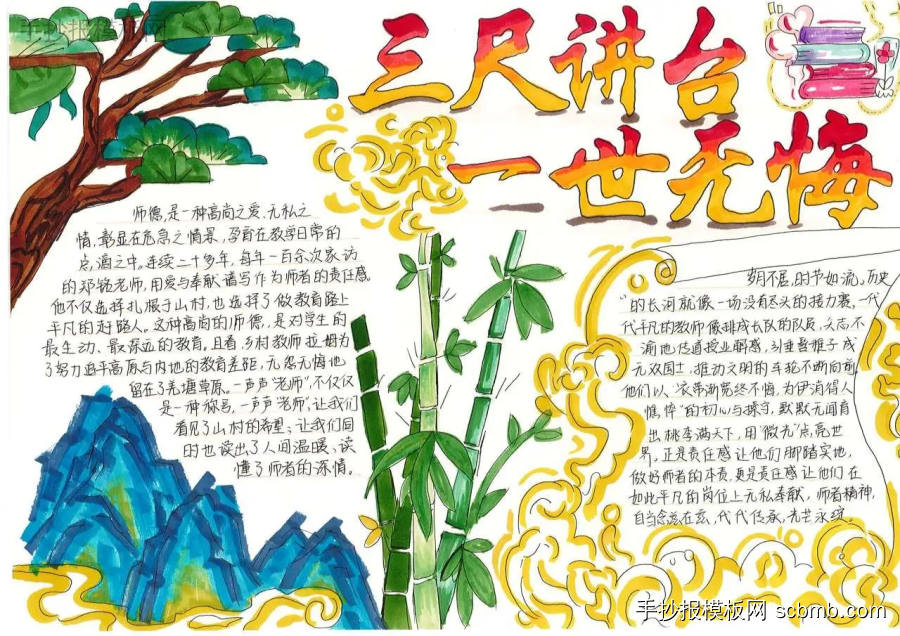 三尺讲台
一世无悔
师德,是一种高尚之爱、无私之
情,彰显在危急之情景,孕育在教学日常的
点滴之中。连续二十多年,每年一百余次家访
的邓铭老师,用爱与奉献谱写作为师者的责任感,
他不仅选择扎根于山村,也选择了做教育路上
平凡的赶路人。这种高尚的师德,是对学生的
最生动、最深远的教育,且看乡村教师拉姆为
了努力追平高原与内地的教育差距,无怨无悔地
留在了羌塘草原。一声声“老师”,不仅仅
是一种称号,一声声“老师”,让我们
看见了山村的希望;让我们同
时也读出了人间温暖、读
懂了师者的深情。
岁月不居,时节如流。历史
的长河就像一场没有尽头的接力赛,一代
代平凡的教师像排成长队的队员,矢志不
渝地传道授业解惑,引垂髫稚子成
无双国士,推动文明的车轮不断向前
他们以“衣带渐宽终不悔,为伊消得人
憔悴”的初心与操守,默默无闻育
出桃李满天下,用“微光”点亮世
界,正是责任感让他们脚踏实地,
做好师者的本责,更是责任感让他们在
如此平凡的岗位上无私奉献,师者精神,
自当念兹在兹,代代传承,光芒永绽。
手抄报模板网 scbmb.com